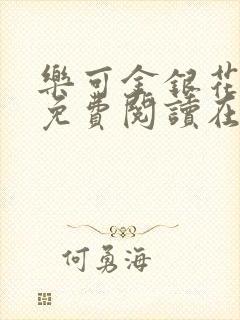 樂可金銀花
免費閱讀在
何勇海